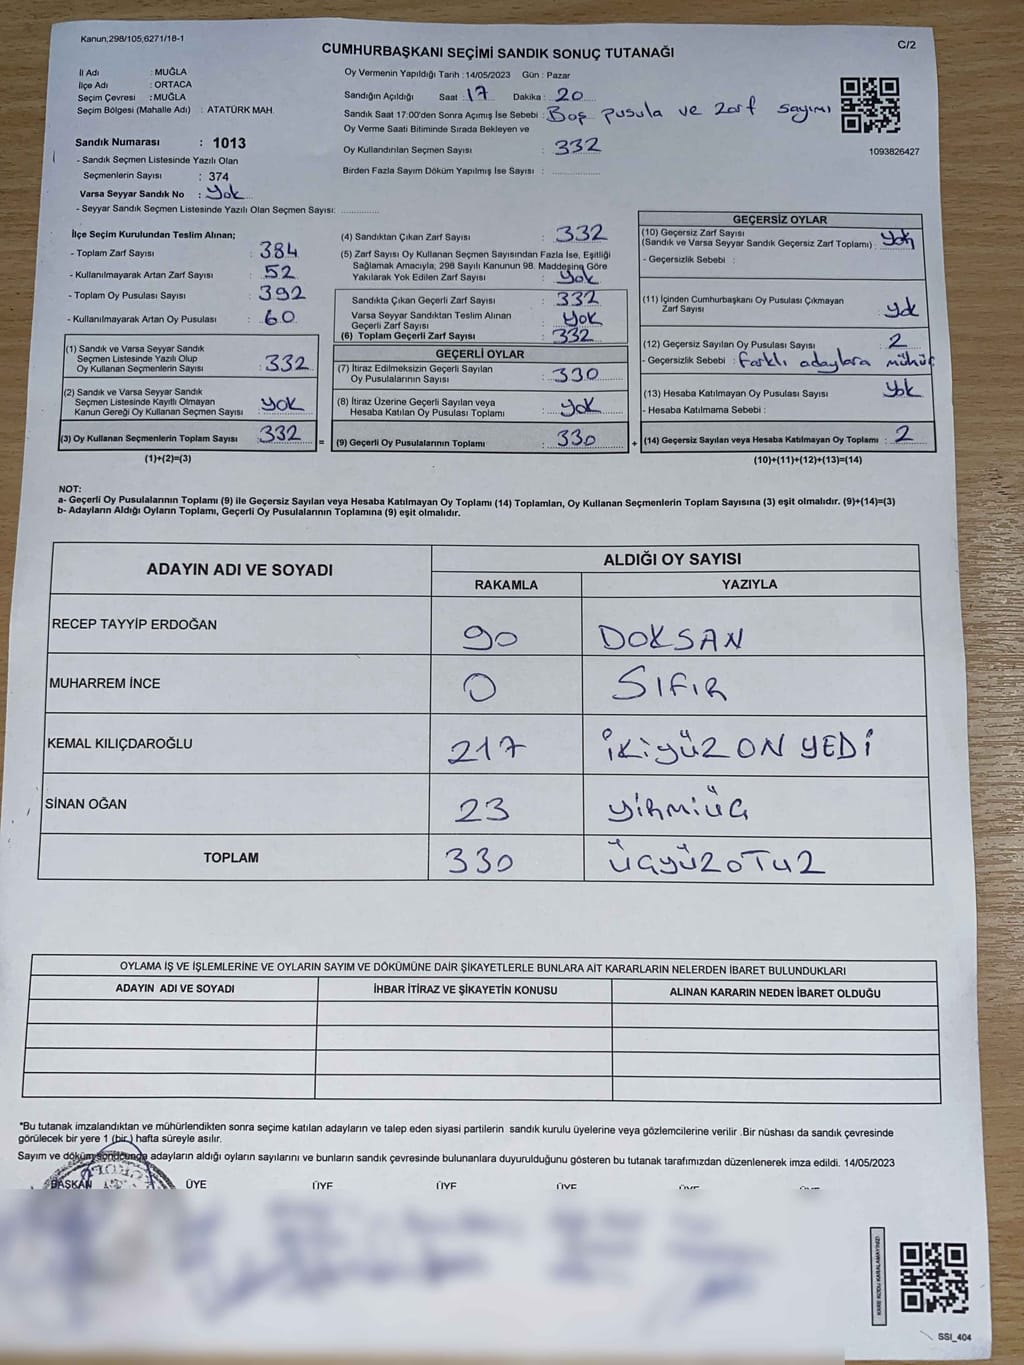 Kanun,298/105;6271/18-1
C/2
CUMHURBAŞKANI SEÇİMİ SANDIK SONUÇ TUTANAĞI
İl Adı : MUĞLA
İlçe Adı : ORTACA
Seçim Çevresi : MUĞLA
Seçim Bölgesi (Mahalle Adı) : ATATÜRK MAH.
Sandık Numarası : 1013
- Sandık Seçmen Listesinde Yazılı Olan
Seçmenlerin Sayısı : 374
Varsa Seyyar Sandık No : Yok
- Seyyar Sandık Seçmen Listesinde Yazılı Olan Seçmen Sayısı: ..............
Oy Vermenin Yapıldığı Tarih : 14/05/2023 Gün : Pazar
Sandığın Açıldığı Saat : 17 Dakika : 20
Sandık Saat 17:00'den Sonra Açımış İse Sebebi : Boş pusula ve zarf sayımı
Oy Verme Saati Bitiminde Sırada Bekleyen ve
Oy Kullandırılan Seçmen Sayısı : 332
Birden Fazla Sayım Döküm Yapılmış İse Sayısı : ..............
1093826427
İlçe Seçim Kurulundan Teslim Alınan;
- Toplam Zarf Sayısı : 384
- Kullanılmayarak Artan Zarf Sayısı : 52
- Toplam Oy Pusulası Sayısı : 392
- Kullanılmayarak Artan Oy Pusulası : 60
(1) Sandık ve Varsa Seyyar Sandık
Seçmen Listesinde Yazılı Olup
Oy Kullanan Seçmenlerin Sayısı : 332
(2) Sandık ve Varsa Seyyar Sandık
Seçmen Listesinde Kayıtlı Olmayan
Kanun Gereği Oy Kullanan Seçmen Sayısı : YOK
(3) Oy Kullanan Seçmenlerin Toplam Sayısı : 332
(1)+(2)=(3)
(4) Sandıktan Çıkan Zarf Sayısı : 332
(5) Zarf Sayısı Oy Kullanan Seçmen Sayısından Fazla İse, Eşitliği
Sağlamak Amacıyla, 298 Sayılı Kanunun 98. Maddesine Göre
Yakılarak Yok Edilen Zarf Sayısı : Yok
Sandıkta Çıkan Geçerli Zarf Sayısı : 332
Varsa Seyyar Sandıktan Teslim Alınan
Geçerli Zarf Sayısı : YOK
(6) Toplam Geçerli Zarf Sayısı : 332
GEÇERLİ OYLAR
(7) İtiraz Edilmeksizin Geçerli Sayılan
Oy Pusulalarının Sayısı : 330
(8) İtiraz Üzerine Geçerli Sayılan veya
Hesaba Katılan Oy Pusulası Toplamı : YOK
= (9) Geçerli Oy Pusulalarının Toplamı : 330
GEÇERSİZ OYLAR
(10) Geçersiz Zarf Sayısı
(Sandık ve Varsa Seyyar Sandık Geçersiz Zarf Toplamı) : Yok
- Geçersizlik Sebebi :
(11) İçinden Cumhurbaşkanı Oy Pusulası Çıkmayan
Zarf Sayısı : yok
(12) Geçersiz Sayılan Oy Pusulası Sayısı : 2
- Geçersizlik Sebebi : farklı adaylara mühür
(13) Hesaba Katılmayan Oy Sayısı : Yok
- Hesaba Katılmama Sebebi :
+ (14) Geçersiz Sayılan veya Hesaba Katılmayan Oy Toplamı : 2
(10)+(11)+(12)+(13)=(14)
NOT:
a- Geçerli Oy Pusulalarının Toplamı (9) ile Geçersiz Sayılan veya Hesaba Katılmayan Oy Toplamı (14) Toplamları, Oy Kullanan Seçmenlerin Toplam Sayısına (3) eşit olmalıdır. (9)+(14)=(3)
b- Adayların Aldığı Oyların Toplamı, Geçerli Oy Pusulalarının Toplamına (9) eşit olmalıdır.
ADAYIN ADI VE SOYADI
ALDIĞI OY SAYISI
RAKAMLA YAZIYLA
RECEP TAYYİP ERDOĞAN 90 DOKSAN
MUHARREM İNCE 0 SIFIR
KEMAL KILIÇDAROĞLU 217 İKİYÜZ ON YEDİ
SİNAN OĞAN 23 YİRMİÜÇ
TOPLAM 330 ÜÇYÜZOTUZ
OYLAMA İŞ VE İŞLEMLERİNE VE OYLARIN SAYIM VE DÖKÜMÜNE DAİR ŞİKAYETLERLE BUNLARA AİT KARARLARIN NELERDEN İBARET BULUNDUKLARI
ADAYIN ADI VE SOYADI İHBAR İTİRAZ VE ŞİKAYETİN KONUSU ALINAN KARARIN NEDEN İBARET OLDUĞU
*Bu tutanak imzalandıktan ve mühürlendikten sonra seçime katılan adayların ve talep eden siyasi partilerin sandık kurulu üyelerine veya gözlemcilerine verilir .Bir nüshası da sandık çevresinde
görülecek bir yere 1 (bir ) hafta süreyle asılır.
Sayım ve döküm sonucunda adayların aldığı oyların sayılarını ve bunların sandık çevresinde bulunanlara duyurulduğunu gösteren bu tutanak tarafımızdan düzenlenerek imza edildi. 14/05/2023
BAŞKAN ÜYE ÜYE ÜYE ÜYE
KARE KODU KARALAMAYINIZ!
SSİ_404